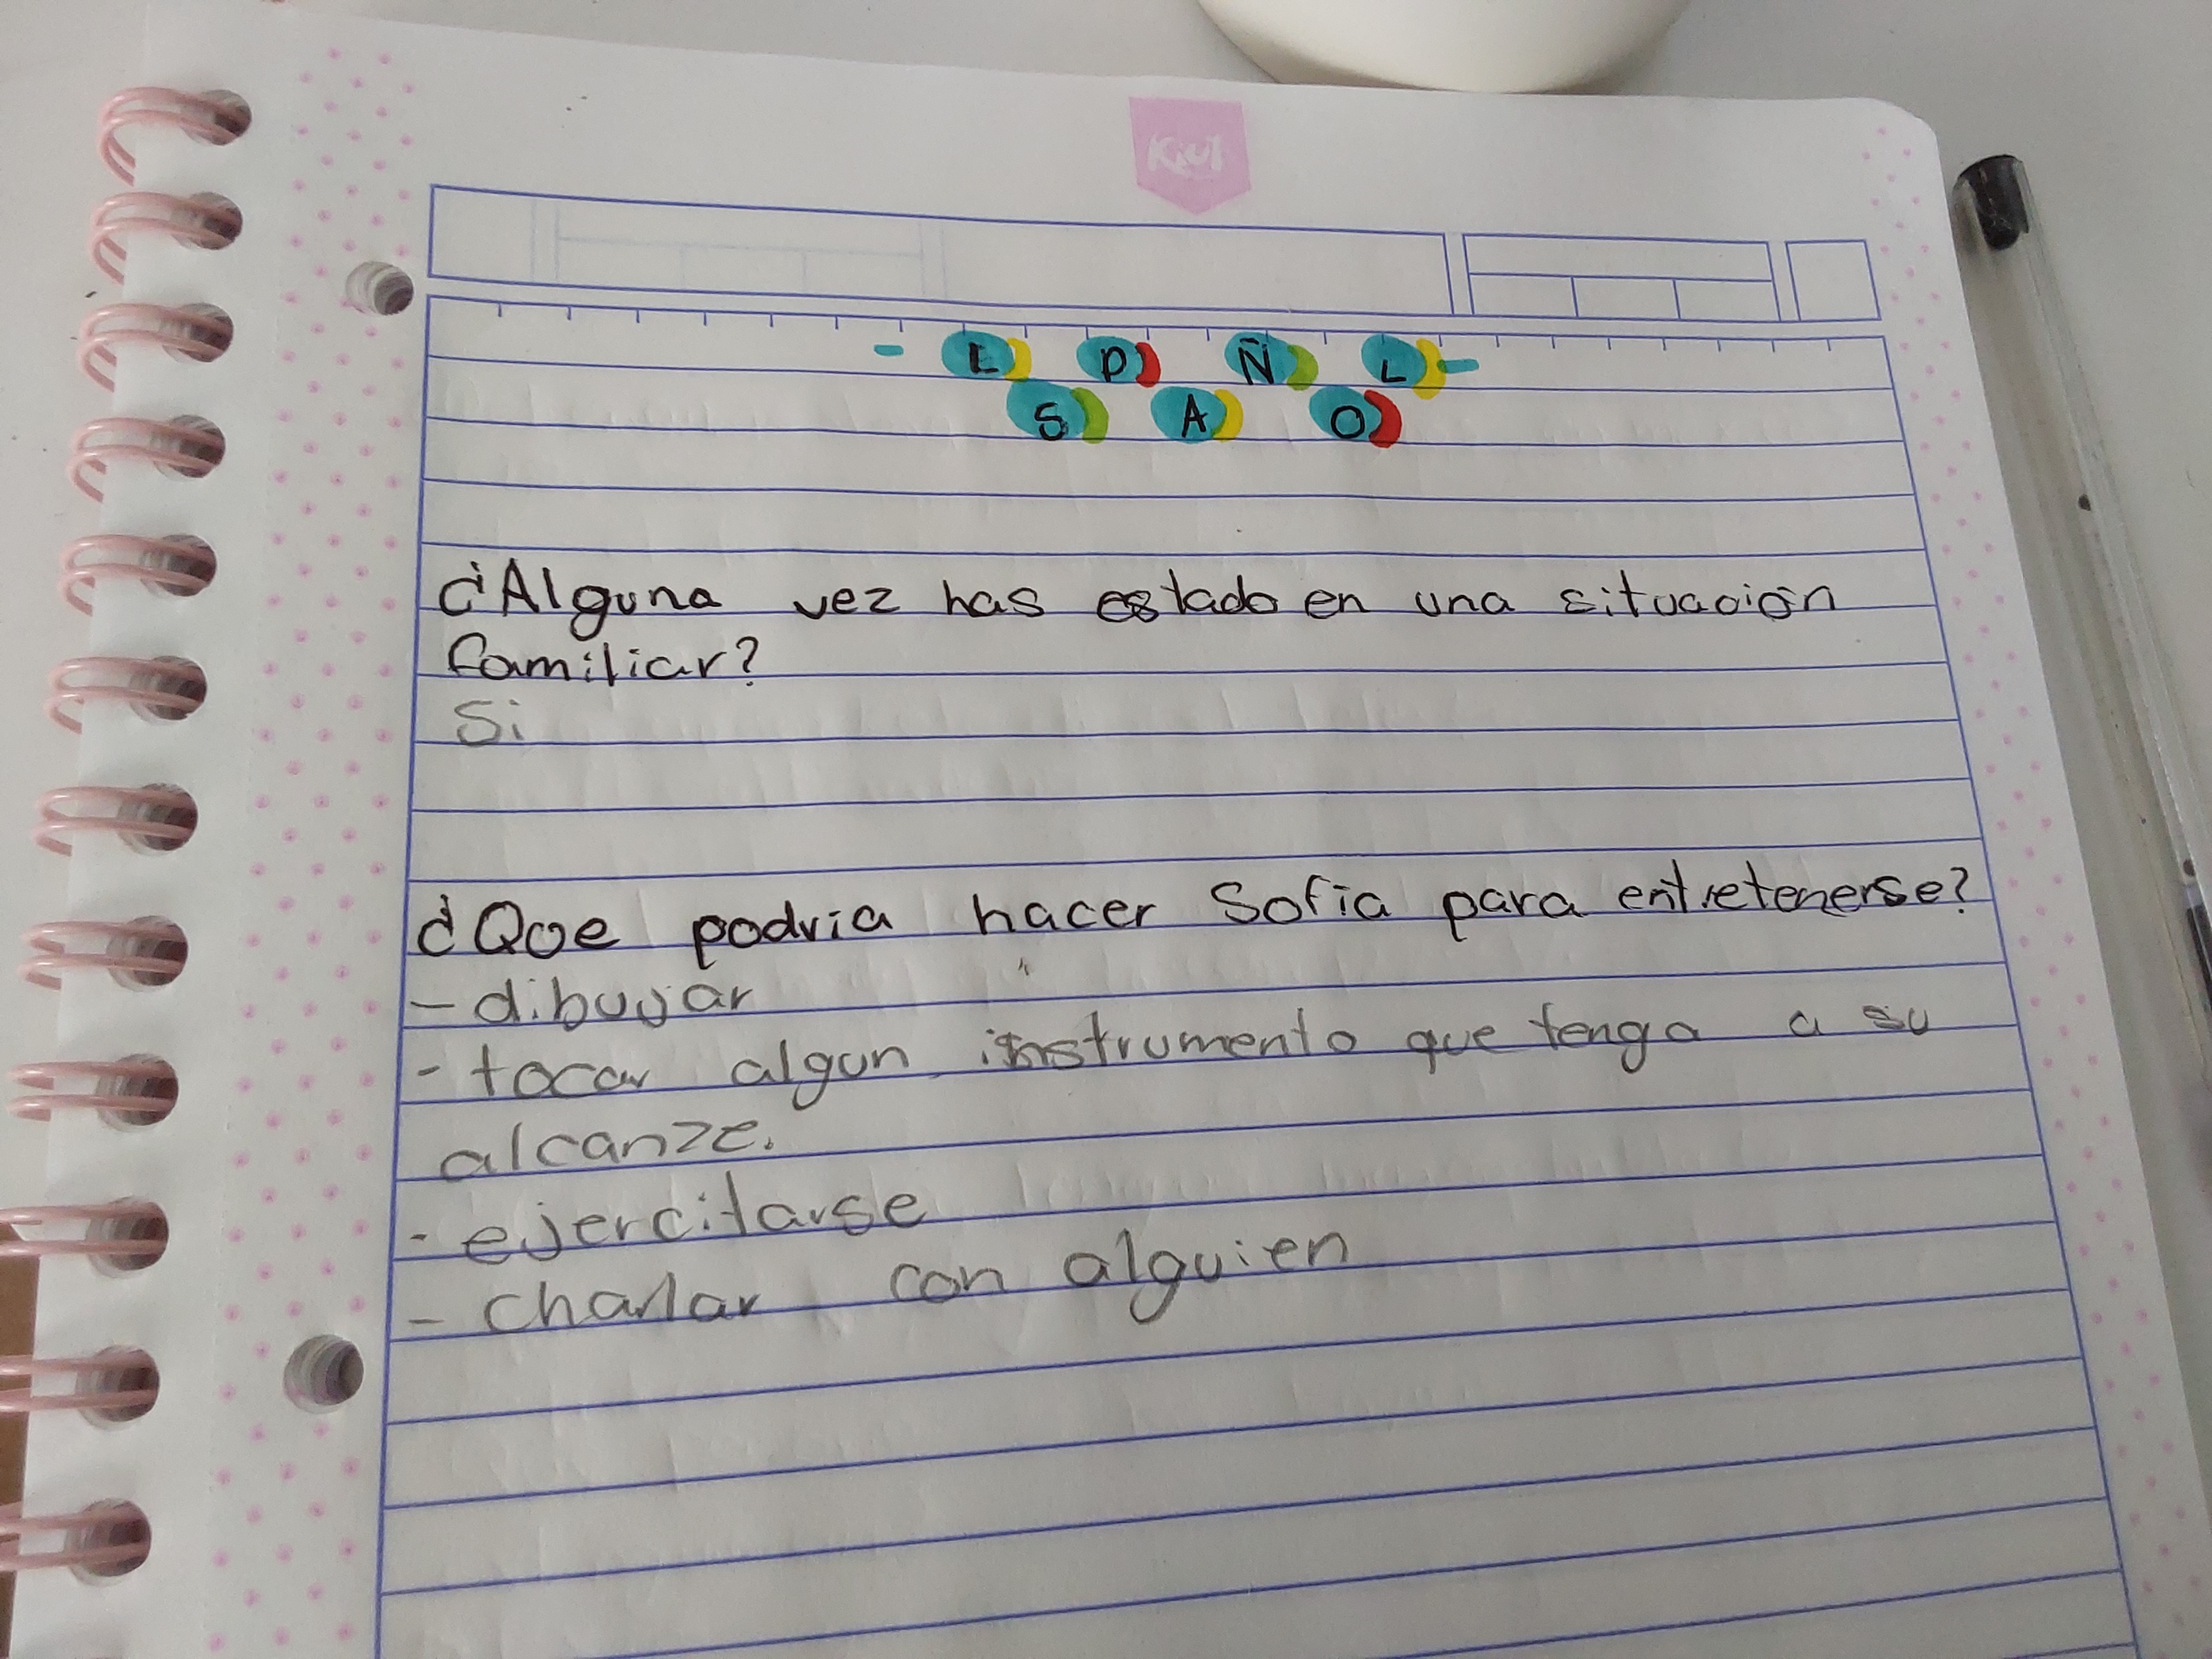 Kiut
- E S P A Ñ O L -
¿Alguna vez has estado en una situación
familiar?
Si
¿Que podria hacer Sofía para entretenerse?
- dibujar
- tocar algun instrumento que tenga a su
alcanze.
- ejercitarse
- charlar con alguien